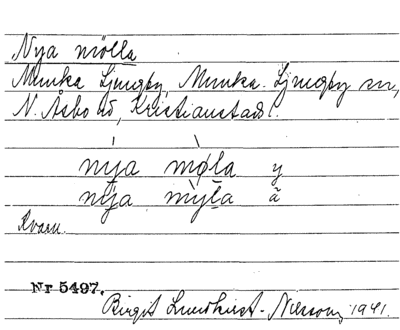 Nya mölla
Munka Ljungby, Munka-Ljungby sn,
N. Åsbo hd, Kristianstads l.
nya møla y
nya mỳla ã
Kvarn.
Nr 5497.
Birgit Lundkvist-Nilsson, 1941.